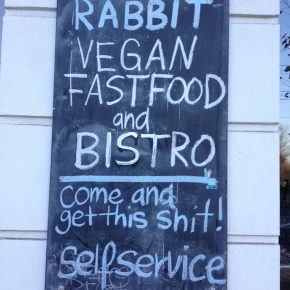 RABBIT
VEGAN
FASTFOOD
and
BISTRO
come and
get this shit!
selfservice